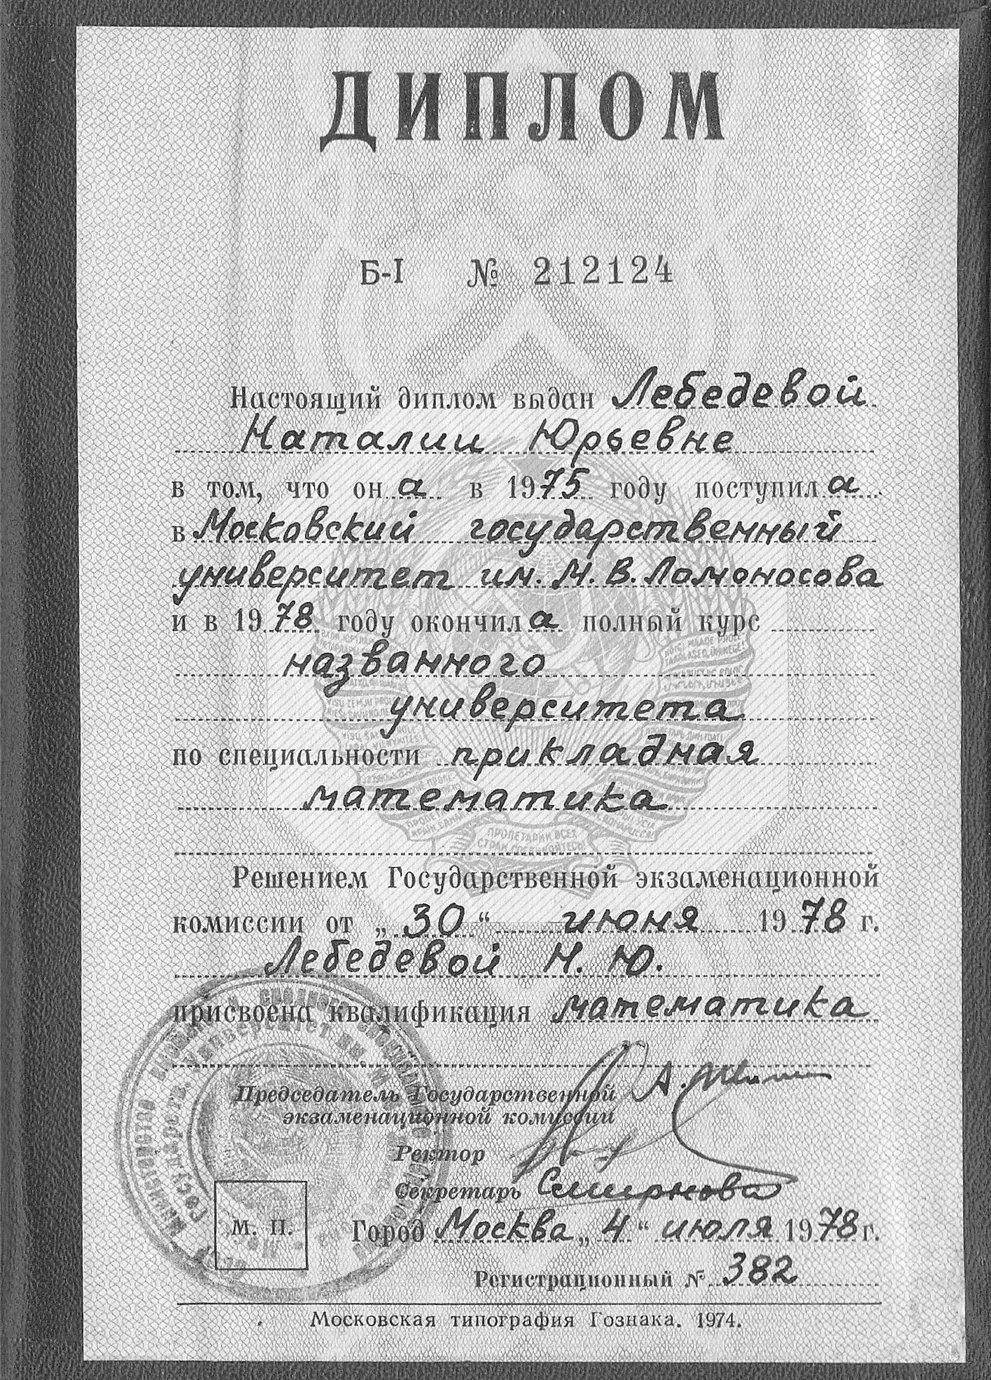 ДИПЛОМ
Б-I № 212124
Настоящий диплом выдан Лебедевой
Наталии Юрьевне
в том, что она в 1975 году поступила
в Московский государственный
университет им. М. В. Ломоносова
и в 1978 году окончила полный курс
названного
университета
по специальности прикладная
математика
ПРОЛЕТАРИИ ВСЕХ
СТРАН, СОЕДИНЯЙТЕСЬ!
Решением Государственной экзаменационной
комиссии от „30“ июня 1978 г.
Лебедевой Н. Ю.
присвоена квалификация математика
Председатель Государственной
экзаменационной комиссии
Ректор
Секретарь Смирнова
М. П.
Город Москва „4“ июля 1978 г.
Регистрационный № 382
Московская типография Гознака. 1974.